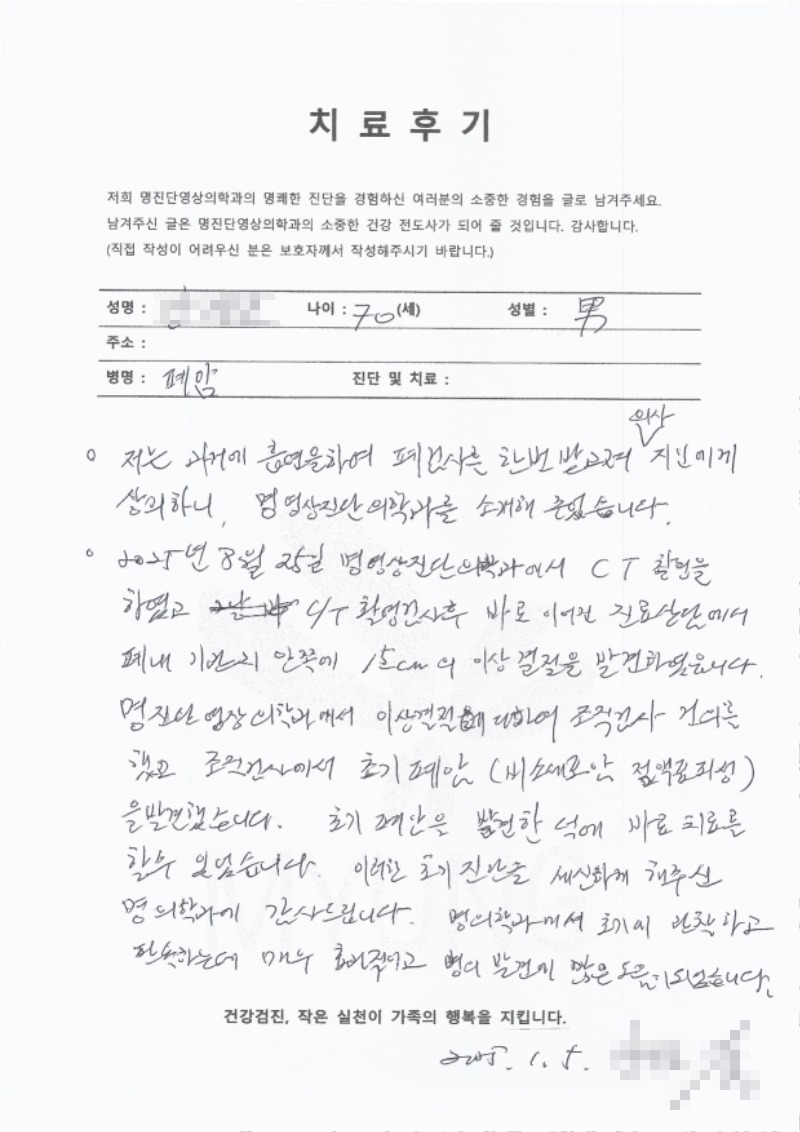 치 료 후 기
저희 명진단영상의학과의 명쾌한 진단을 경험하신 여러분의 소중한 경험을 글로 남겨주세요.
남겨주신 글은 명진단영상의학과의 소중한 건강 전도사가 되어 줄 것입니다. 감사합니다.
(직접 작성이 어려우신 분은 보호자께서 작성해주시기 바랍니다.)
성명 : 나이 : 70 (세) 성별 : 男
주소 :
병명 : 폐암 진단 및 치료 :
의사
○ 저는 과거에 흡연을하여 폐검사를 한번 받고져 지인에게
상의하니, 명영상진단의학과를 소개해 주었습니다.
○ 2025년 8월 25일 명영상진단의학과에서 CT 촬영을
하였고 C/T 촬영검사후 바로 이어진 진료상담에서
폐내 기관지 안쪽에 1.5cm의 이상결절을 발견하였습니다.
명진단영상의학과에서 이상결절에 대하여 조직검사 건의를
했고 조직검사에서 초기폐암 (비소세포암 점액표피성)
을발견했습니다. 초기 폐암을 발견한 덕에 바로 치료를
할수 있었습니다. 이러한 초기진단을 세심하게 해주신
명의학과에 감사드립니다. 명의학과에서 초기에 하고
하는데 매우 효과적이고 병의 발견에 많은 도움이되었습니다.
건강검진, 작은 실천이 가족의 행복을 지킵니다.
2025. 1. 5.
MYUNG